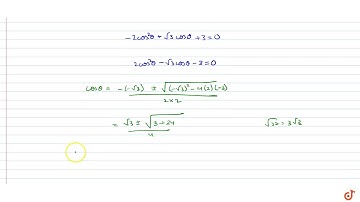 -2cos²θ + √3 cosθ + 3 = 0
2cos²θ - √3 cosθ - 3 = 0
cosθ = -(-√3) ± √((-√3)² - 4(2)(-3)) / 2×2
= √3 ± √(3+24) / 4
√27 = 3√3